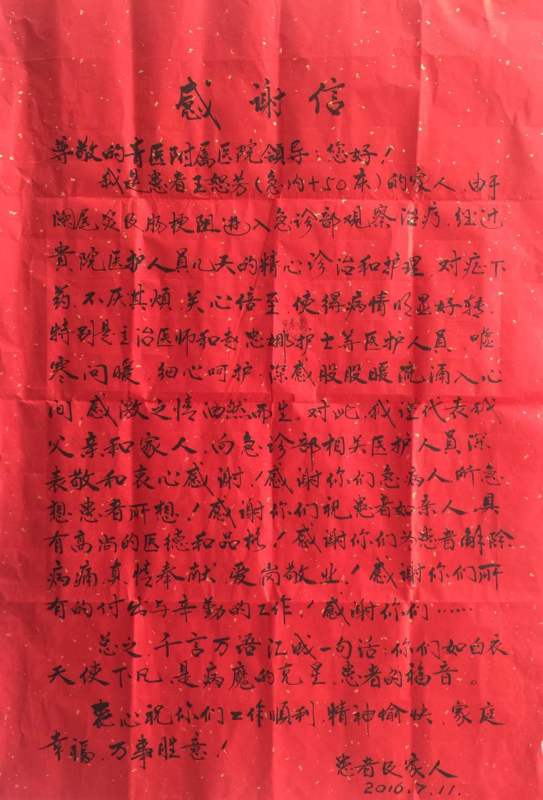 感谢信
尊敬的青医附属医院领导：您好！
我是患者王恕芳（急内+50床）的家人，由于
阑尾炎及肠梗阻进入急诊部观察治疗，经过
贵院医护人员几天的精心诊治和护理，对症下
药，不厌其烦，关心倍至，使得病情明显好转，
特别是主治医师和赵思娜护士等医护人员，嘘
寒问暖，细心呵护，深感股股暖流涌入心
间，感激之情油然而生，对此，我谨代表我
父亲和家人，向急诊部相关医护人员深
表敬和衷心感谢！感谢你们急病人所急，
想患者所想！感谢你们视患者如亲人，具
有高尚的医德和品格！感谢你们为患者解除
病痛，真情奉献，爱岗敬业！感谢你们所
有的付出与辛勤的工作！感谢你们……
总之，千言万语汇成一句话：你们如白衣
天使下凡，是病魔的克星，患者的福音。
衷心祝你们工作顺利，精神愉快，家庭
幸福，万事胜意！
患者及家人
2016.7.11.